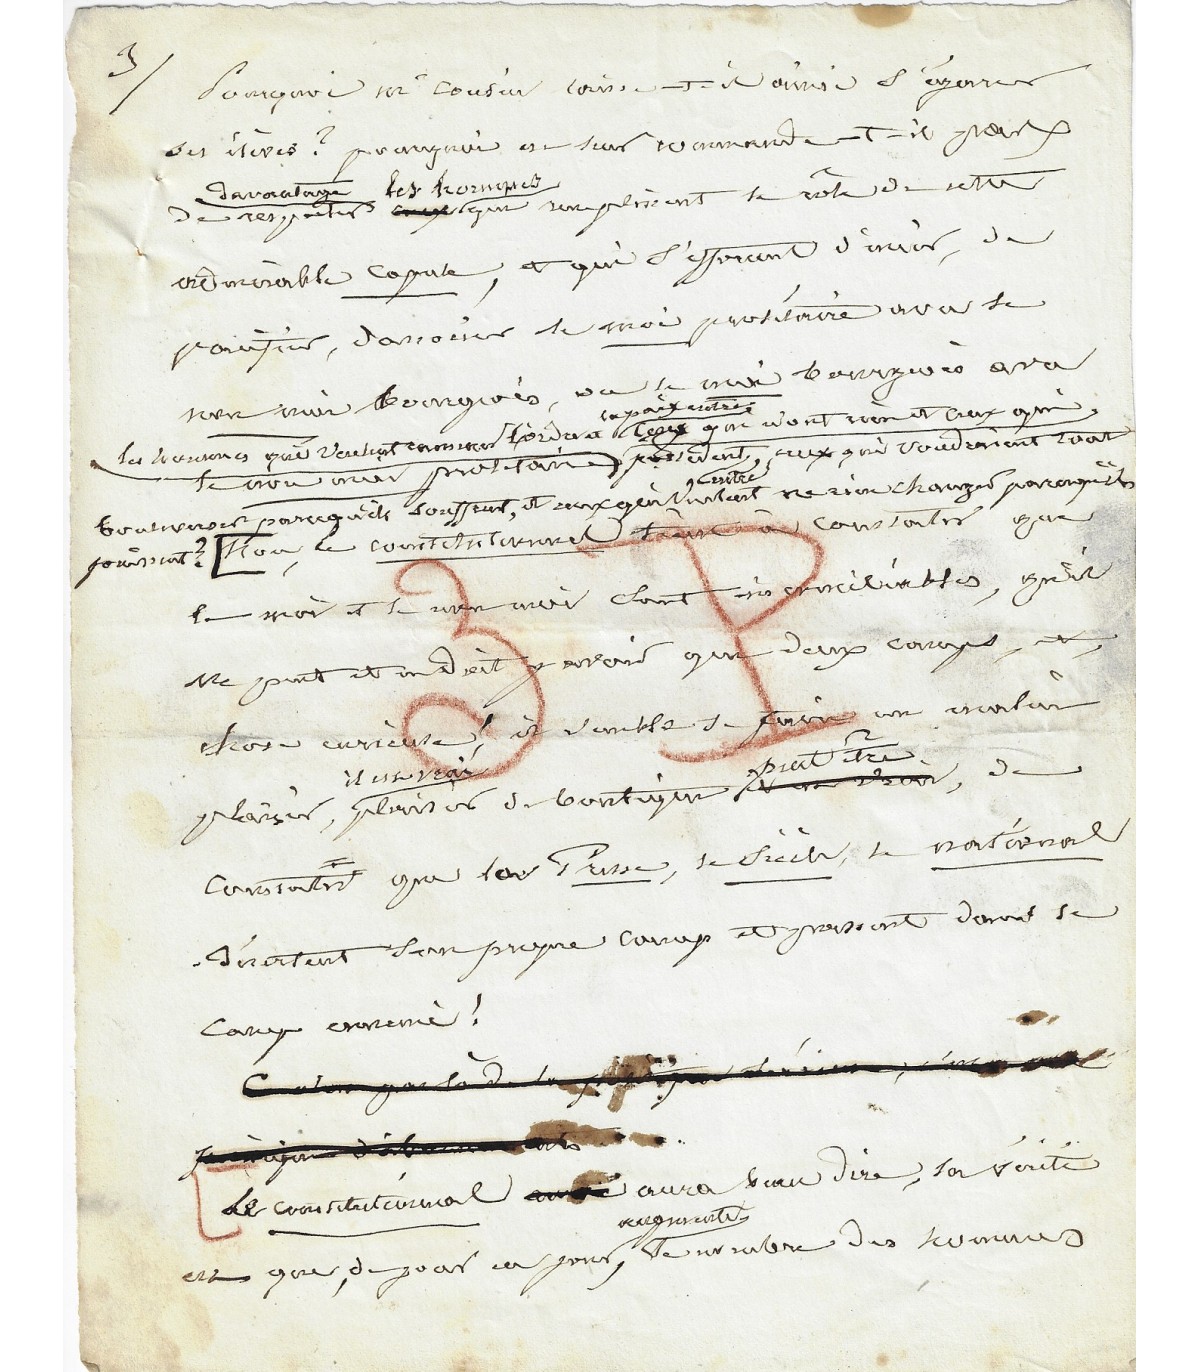 3/
Pourquoi Mr Cousin laisse-t-il ainsi s'égarer
ses élèves? pourquoi ne leur recommande-t-il pas
davantage les hommes
de respecter ceux qui remplissent le rôle de cette
admirable copule, et qui s'efforcent d'unir, de
pacifier, d'associer le moi prolétaire avec le
non moi bourgeois, ou le moi bourgeois avec
le non moi prolétaire,
les hommes qui veulent ramener l'ordre et la paix entre ceux qui n'ont rien et ceux qui
possèdent, entre ceux qui voudraient tout
bouleverser parcequ'ils souffrent, et ceux qui veulent ne rien changer parcequ'ils
jouissent? Non, le constitutionnel tient à constater que
le moi et le non moi sont irréconciliables, qu'il
ne peut et ne doit y avoir que deux camps, et,
chose curieuse! il semble se faire un malin
il est vrai peut être
plaisir, plaisir de boutiquier, de
constater que la Presse, le Siècle, le national
désertent leur propre camp et passent dans le
camp ennemi!
Le constitutionnel aura beau dire, la vérité
augmente
est que, de jour en jour, le nombre des hommes